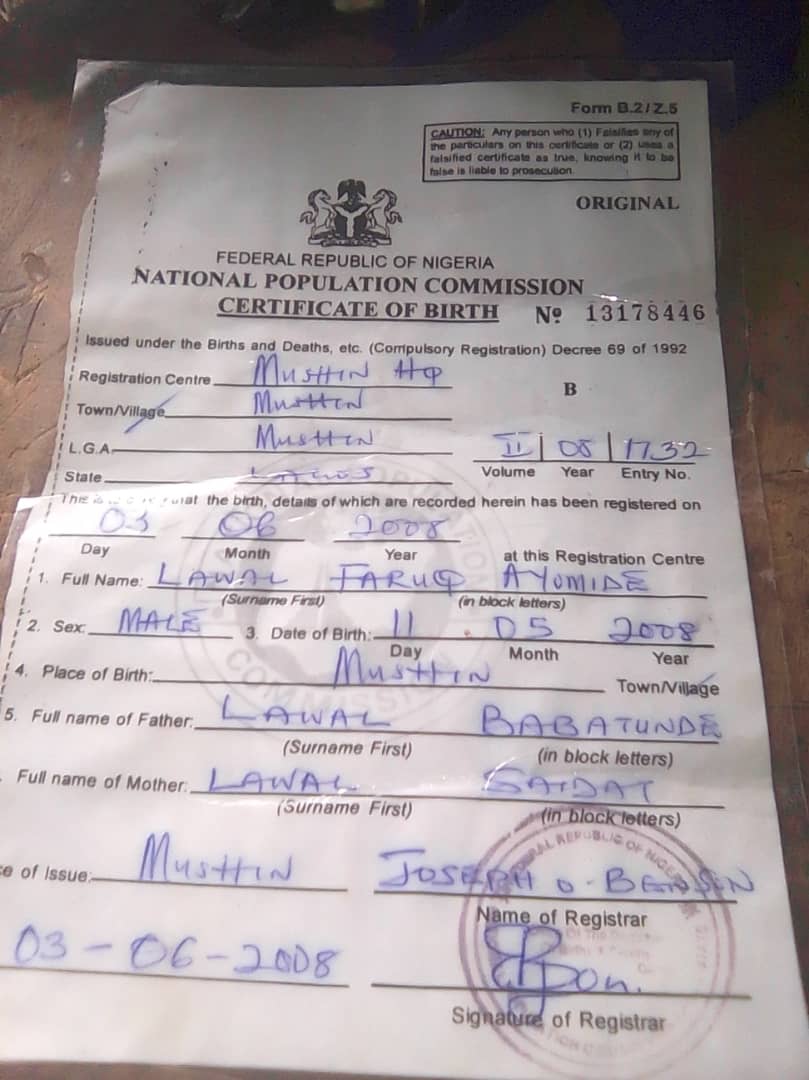 Form B.2/Z.5
CAUTION: Any person who (1) Falsifies any of
the particulars on this certificate or (2) uses a
falsified certificate as true, knowing it to be
false is liable to prosecution.
ORIGINAL
FEDERAL REPUBLIC OF NIGERIA
NATIONAL POPULATION COMMISSION
CERTIFICATE OF BIRTH Nº 13178446
Issued under the Births and Deaths, etc. (Compulsory Registration) Decree 69 of 1992
Registration Centre MUSHIN HQ
B
Town/Village MUSHIN
L.G.A. MUSHIN
II | 08 | 1732
Volume Year Entry No.
State LAGOS
This is to that the birth, details of which are recorded herein has been registered on
03 06 2008
Day Month Year at this Registration Centre
1. Full Name: LAWAL FARUQ AYOMIDE
(Surname First) (in block letters)
2. Sex: MALE 3. Date of Birth: 11 05 2008
Day Month Year
4. Place of Birth: MUSHIN
Town/Village
5. Full name of Father: LAWAL BABATUNDE
(Surname First) (in block letters)
Full name of Mother: LAWAL SAIDAT
(Surname First) (in block letters)
of Issue: MUSHIN JOSEPH O.
Name of Registrar
03-06-2008
Signature of Registrar